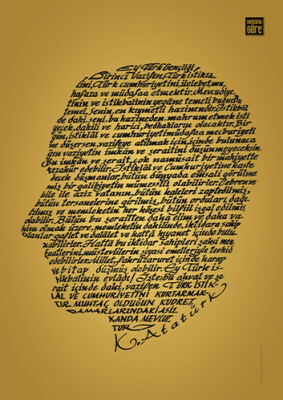 haluköz
GÖRE
Ey Türk Gençliği,
Birinci Vazifen, Türk istiklâ
lini, Türk cumhuriyetini, ilelebet mu
hafaza ve müdafaa etmektir. Mevcudiye
tinin ve istikbalinin yegâne temeli budur. Bu
temel, senin, en kıymetli hazinendir. İstikbal
de dahi, seni, bu hazineden mahrum etmek isti
yecek, dahili ve harici, bedhahların olacaktır. Bir
gün, istiklâl ve cumhuriyeti müdafaa mecburiyeti
ne düşersen, vazifeye atılmak için, içinde bulunaca
ğın vaziyetin imkân ve şeraitini düşünmeyeceksin.
Bu imkân ve şerait, çok namüsait bir mahiyette
tezahür edebilir. İstiklâl ve Cumhuriyetine kaste
decek düşmanlar, bütün dünyada emsali görülme
miş bir galibiyetin mümessili olabilirler. Cebren ve
hile ile aziz vatanın, bütün kaleleri zaptedilmiş,
bütün tersanelerine girilmiş, bütün orduları dağı
tılmış ve memleketin her köşesi bilfiil işgal edilmiş
olabilir. Bütün bu şeraitten daha elim ve daha va
him olmak üzere, memleketin dahilinde, iktidara sahip
olanlar gaflet ve dalâlet ve hattâ hıyanet içinde bulu
nabilirler. Hattâ bu iktidar sahipleri şahsi men
faatlerini, müstevlilerin siyasi emelleriyle tevhid
edebilirler. Millet, fakrü zaruret içinde harap
ve bitap düşmüş olabilir. Ey Türk is
tikbalinin evladı! İşte bu ahval ve şe
rait içinde dahi, vazifen TÜRK İSTİK
LÂL VE CUMHURİYETİNİ KURTARMAK
TIR. MUHTAÇ OLDUĞUN KUDRET,
DAMARLARINDAKİ ASİL
KANDA MEVCUT
TUR.
K. Atatürk